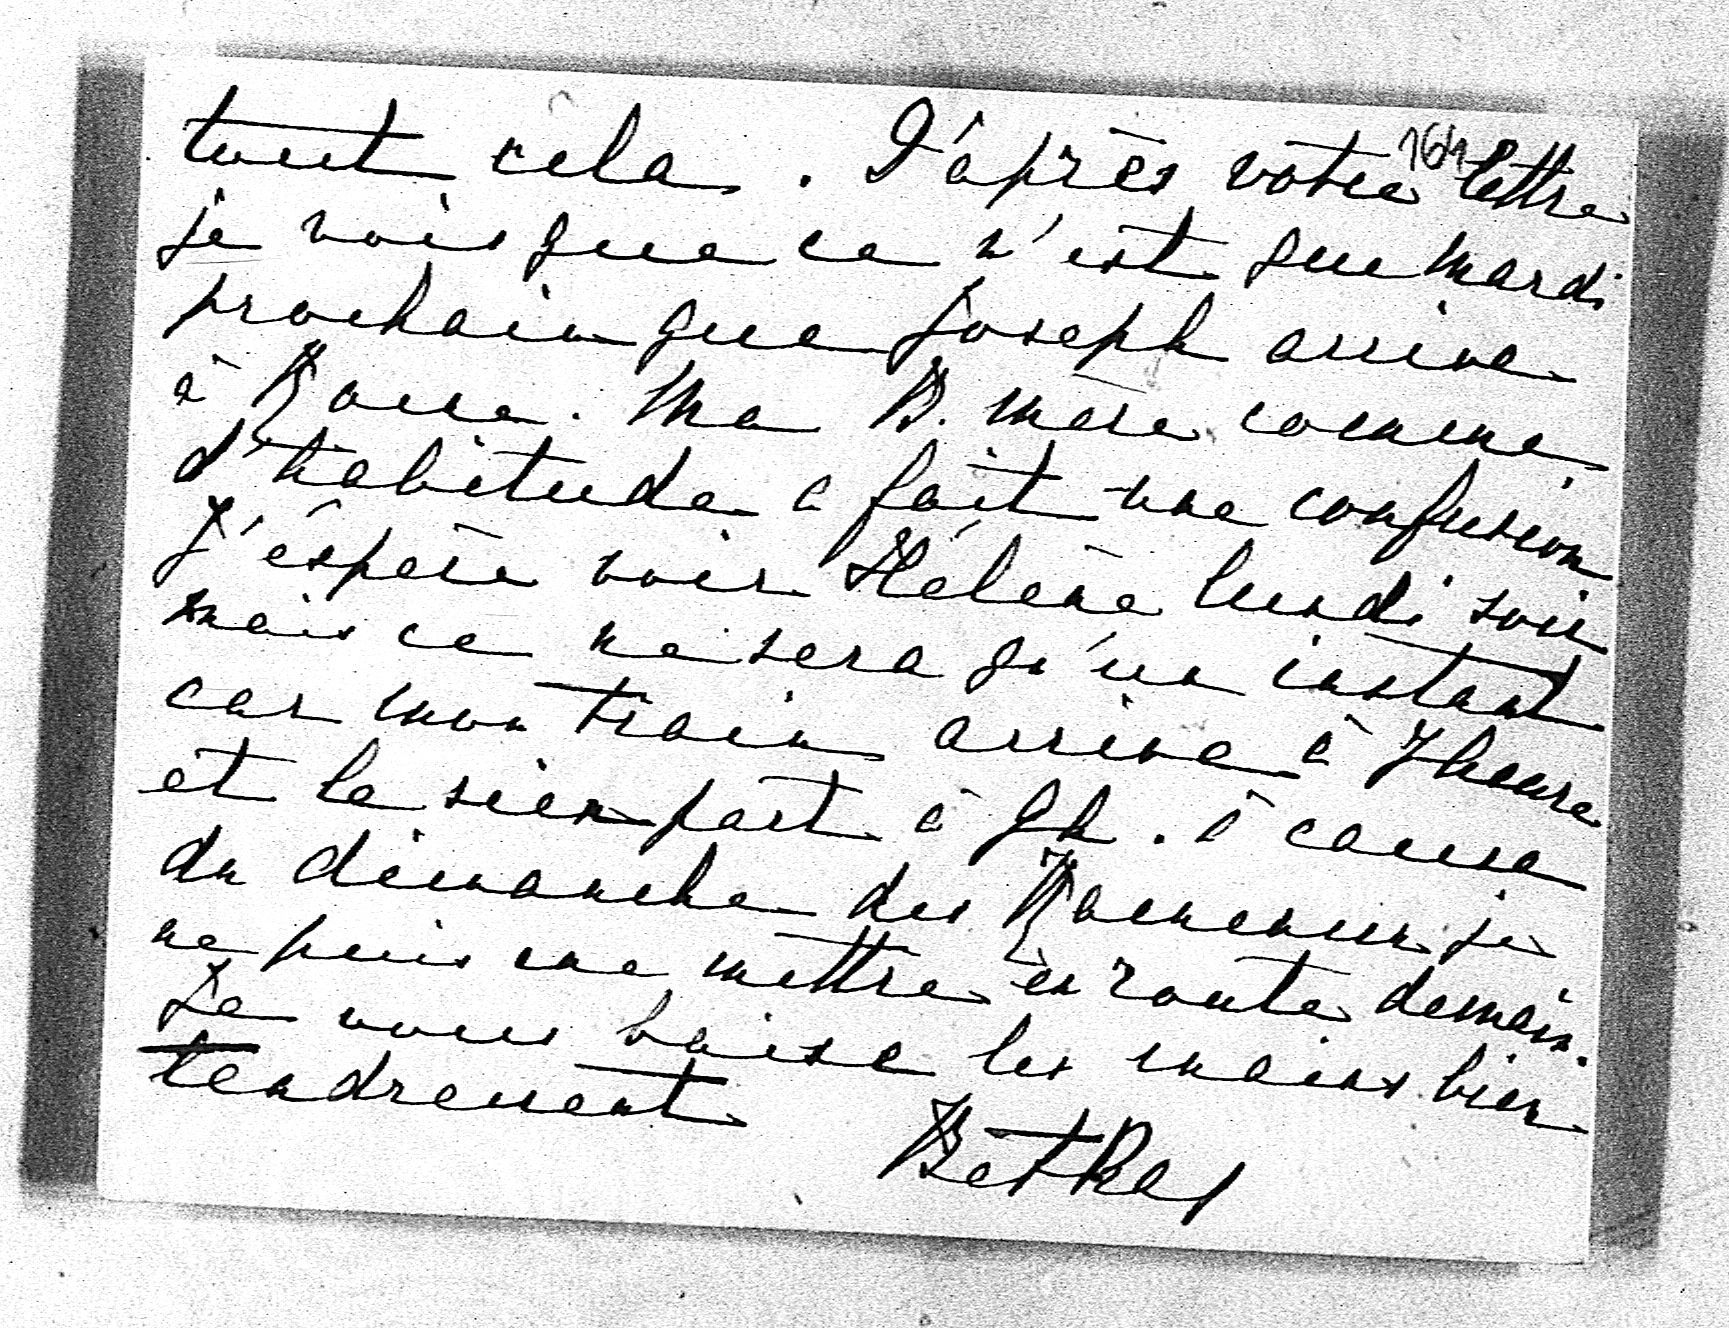 tout cela. D'après votre 164 lettre
je vois que ce n'est que mardi
prochain que Joseph arrive
à Rome. Ma B. mère comme
d'habitude a fait une confusion
J'éspère voir Hélène lundi soir
mais ce ne sera qu'un instant
car mon train arrive à 7 heure
et le sien part à 9h. à cause
du dimanche des Rameaux je
ne puis me mettre en route demain.
Je vous baise les mains bien
tendrement